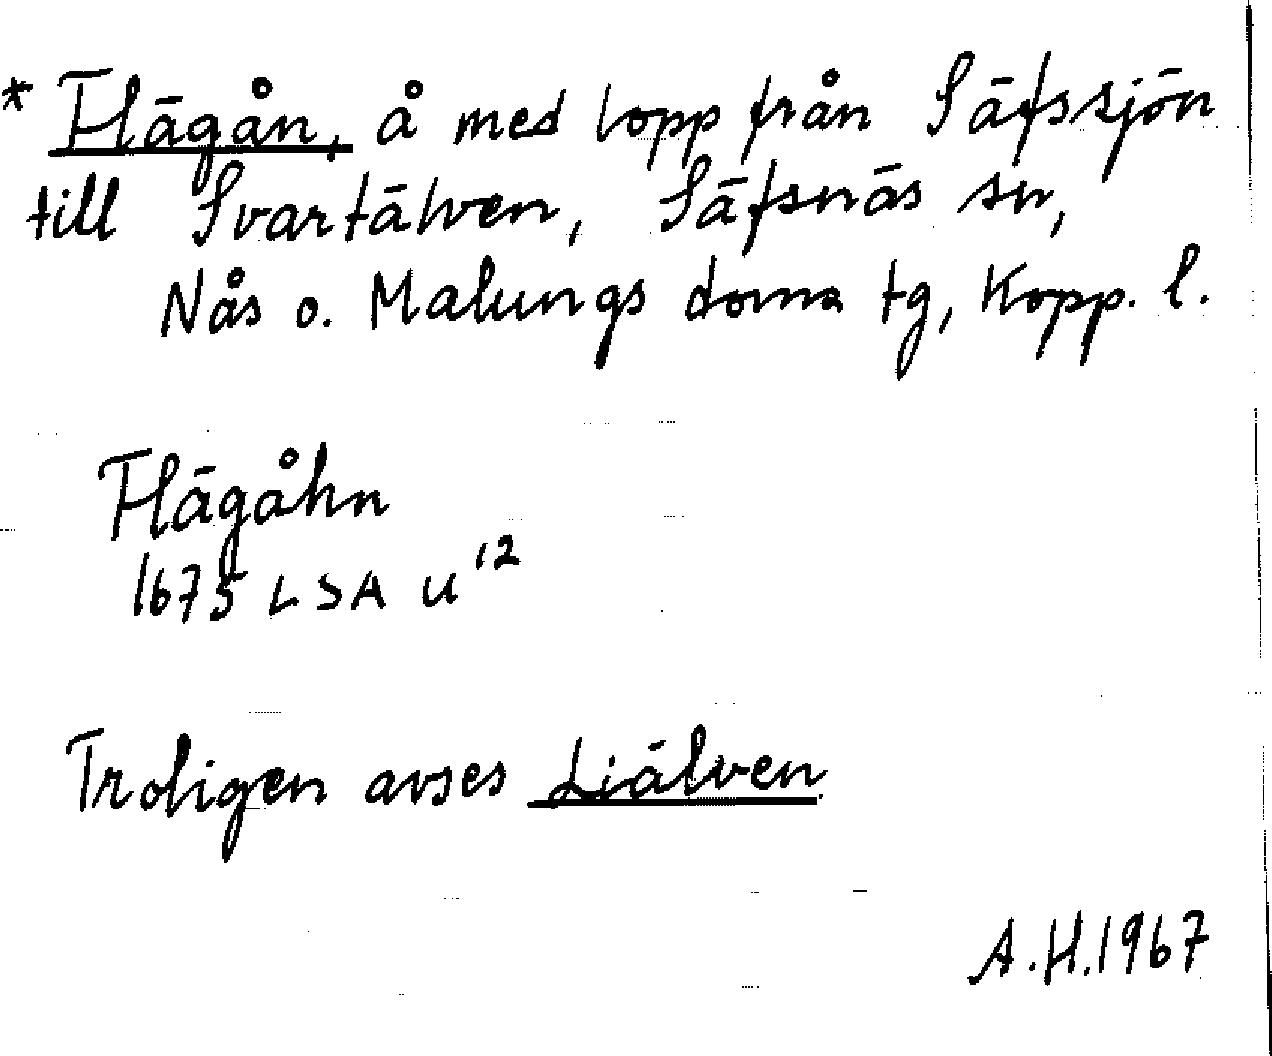 * Flägån, å med lopp från Säfssjön
till Svartälven, Säfsnäs sn,
Nås o. Malungs doms tg, Kopp. l.
Flägåhn
1675 LSA U 12
Troligen avses Liälven.
A.H. 1967